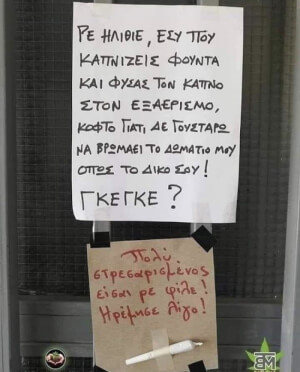 ΡΕ ΗΛΙΘΙΕ, ΕΣΥ ΠΟΥ
ΚΑΠΝΙΖΕΙΣ ΦΟΥΝΤΑ
ΚΑΙ ΦΥΣΑΣ ΤΟΝ ΚΑΠΝΟ
ΣΤΟΝ ΕΞΑΕΡΙΣΜΟ,
ΚΟΦΤΟ ΓΙΑΤΙ, ΔΕ ΓΟΥΣΤΑΡΩ
ΝΑ ΒΡΩΜΑΕΙ ΤΟ ΔΩΜΑΤΙΟ ΜΟΥ
ΟΠΩΣ ΤΟ ΔΙΚΟ ΣΟΥ!
ΓΚΕΓΚΕ?
Πολύ
στρεσαρισμένος
είσαι ρε φίλε!
Ηρέμησε λίγο!
BM